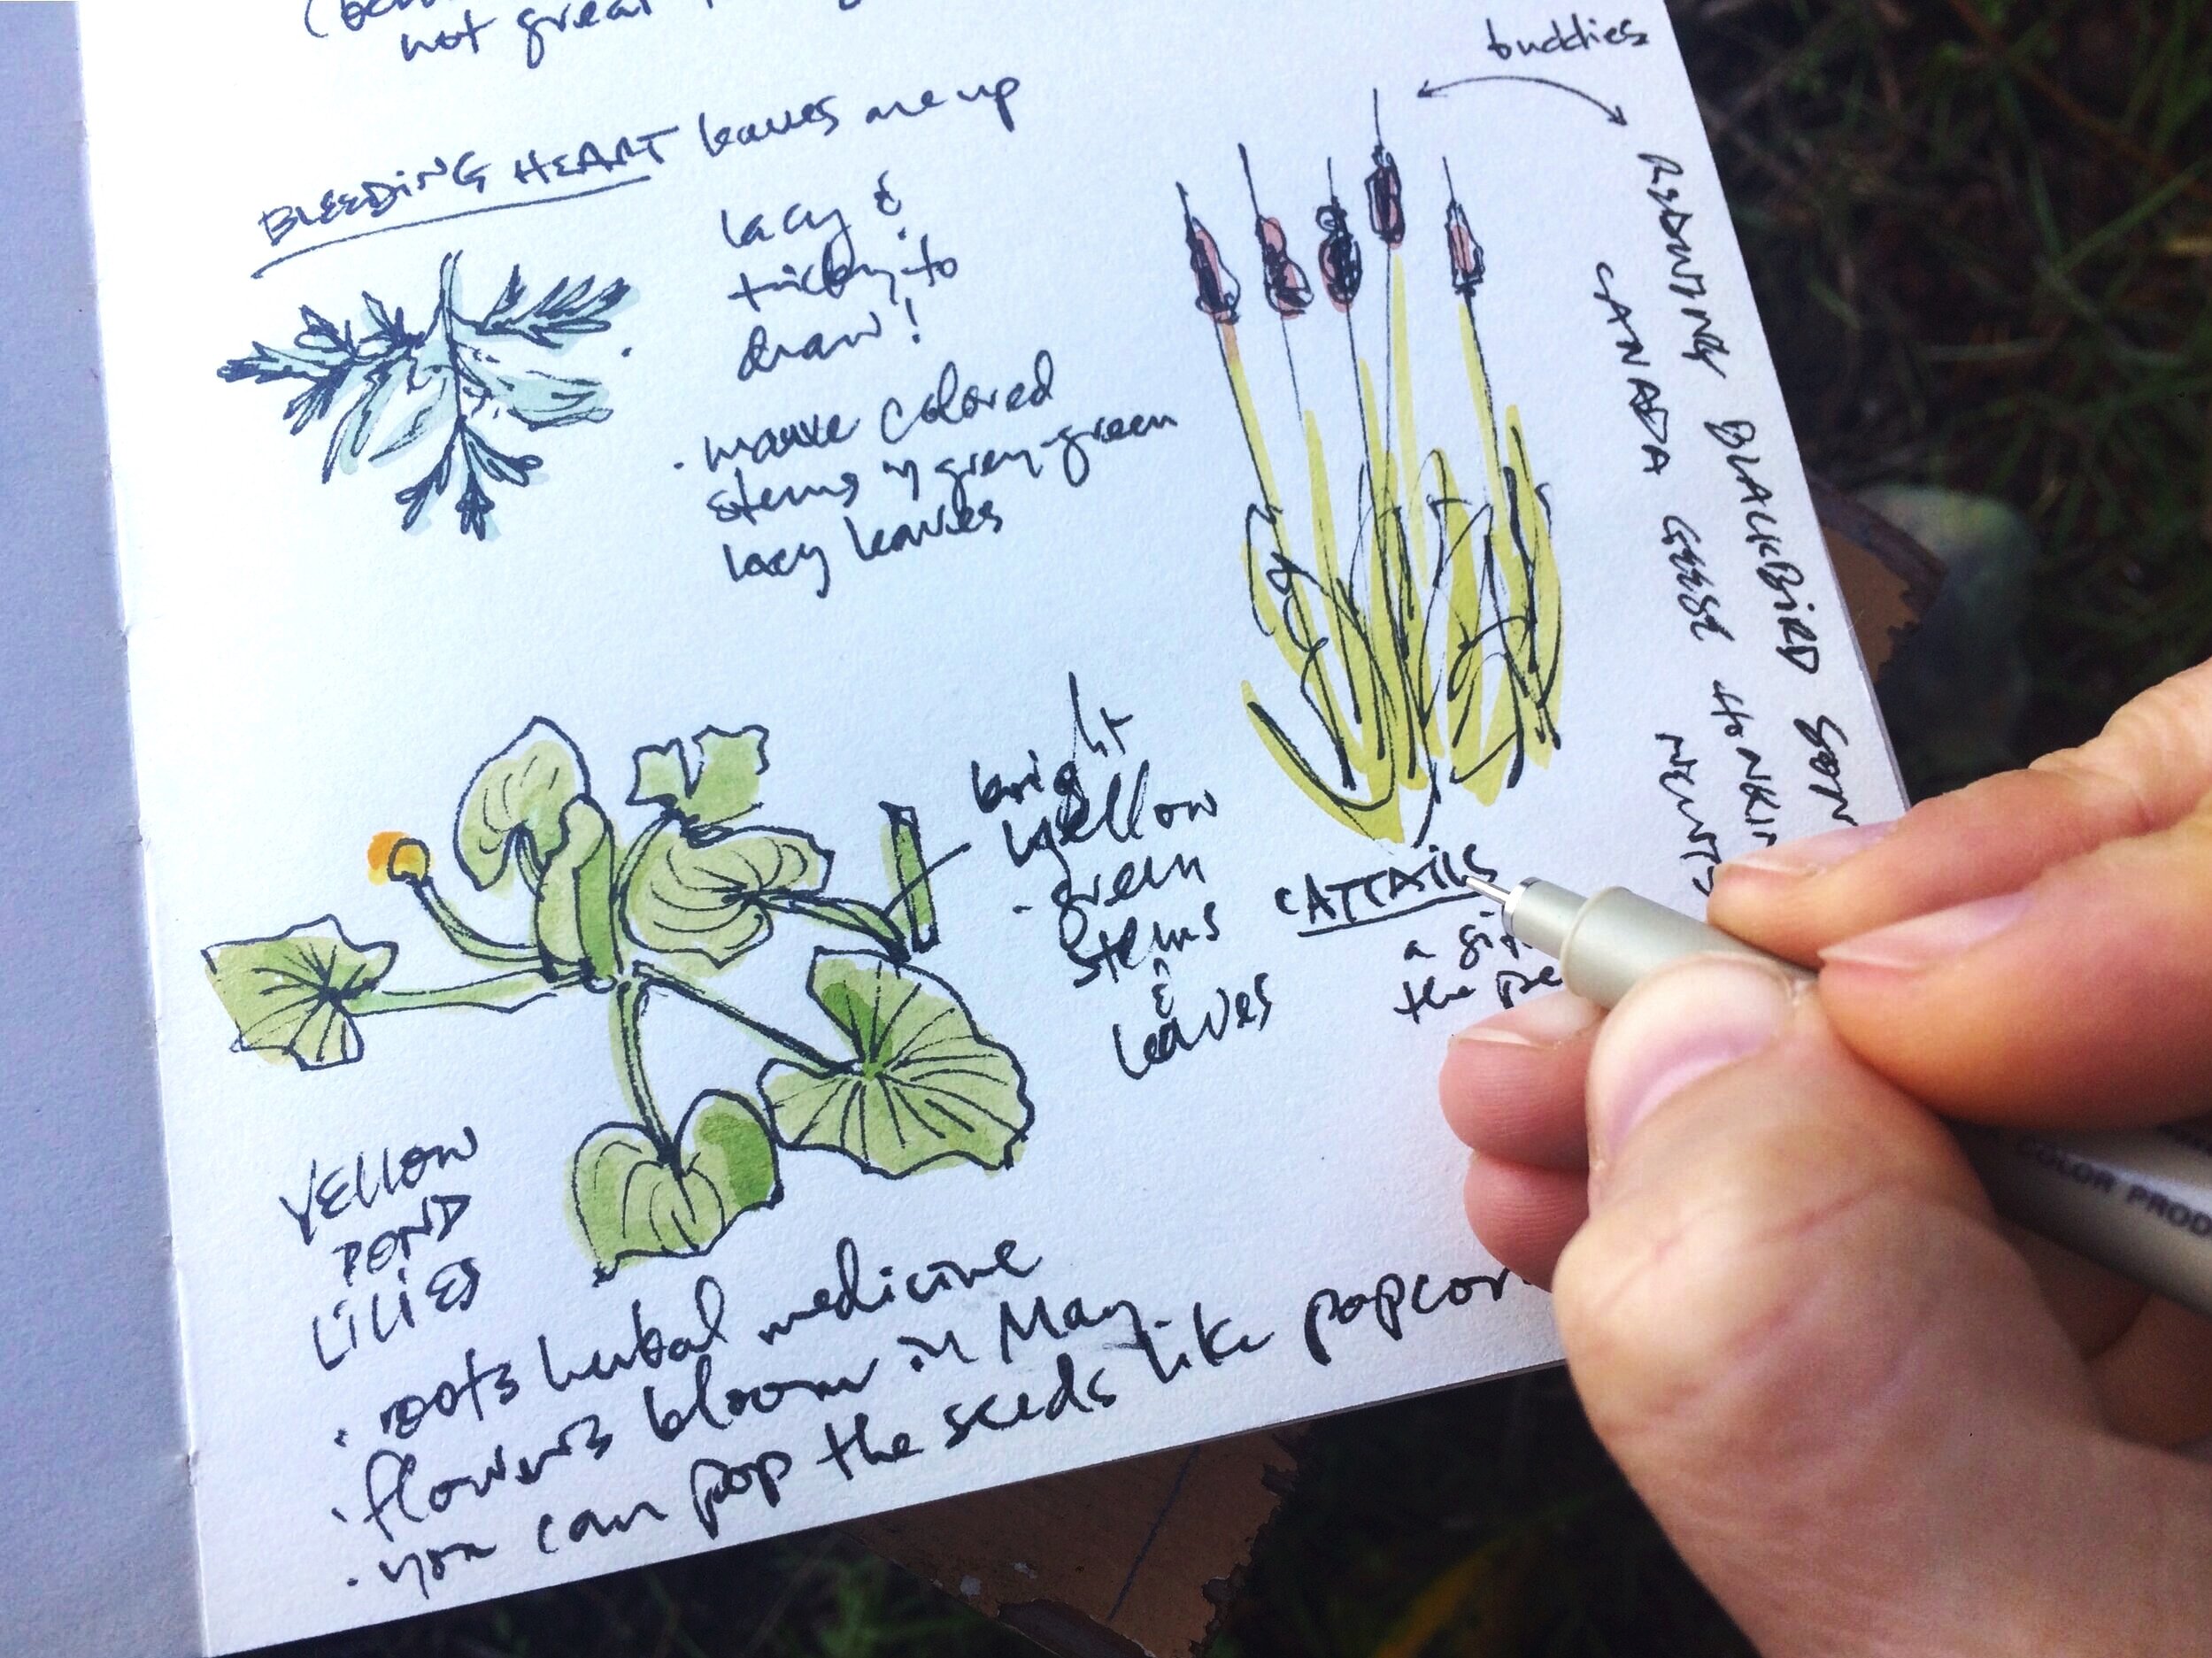 not great
BLEEDING HEART leaves are up
lacy &
tricky to
draw!
· mauve colored
stems w grey-green
lacy leaves
buddies
REDWING BLACKBIRD SEEN
CANADA GEESE HONKIN
NEWTS
bright
yellow
-green
stems
&
leaves
CATTAILS
a
the
YELLOW
POND
LILIES
· roots herbal medicine
· flowers bloom in May
· you can pop the seeds like popcorn
COLOR PROD